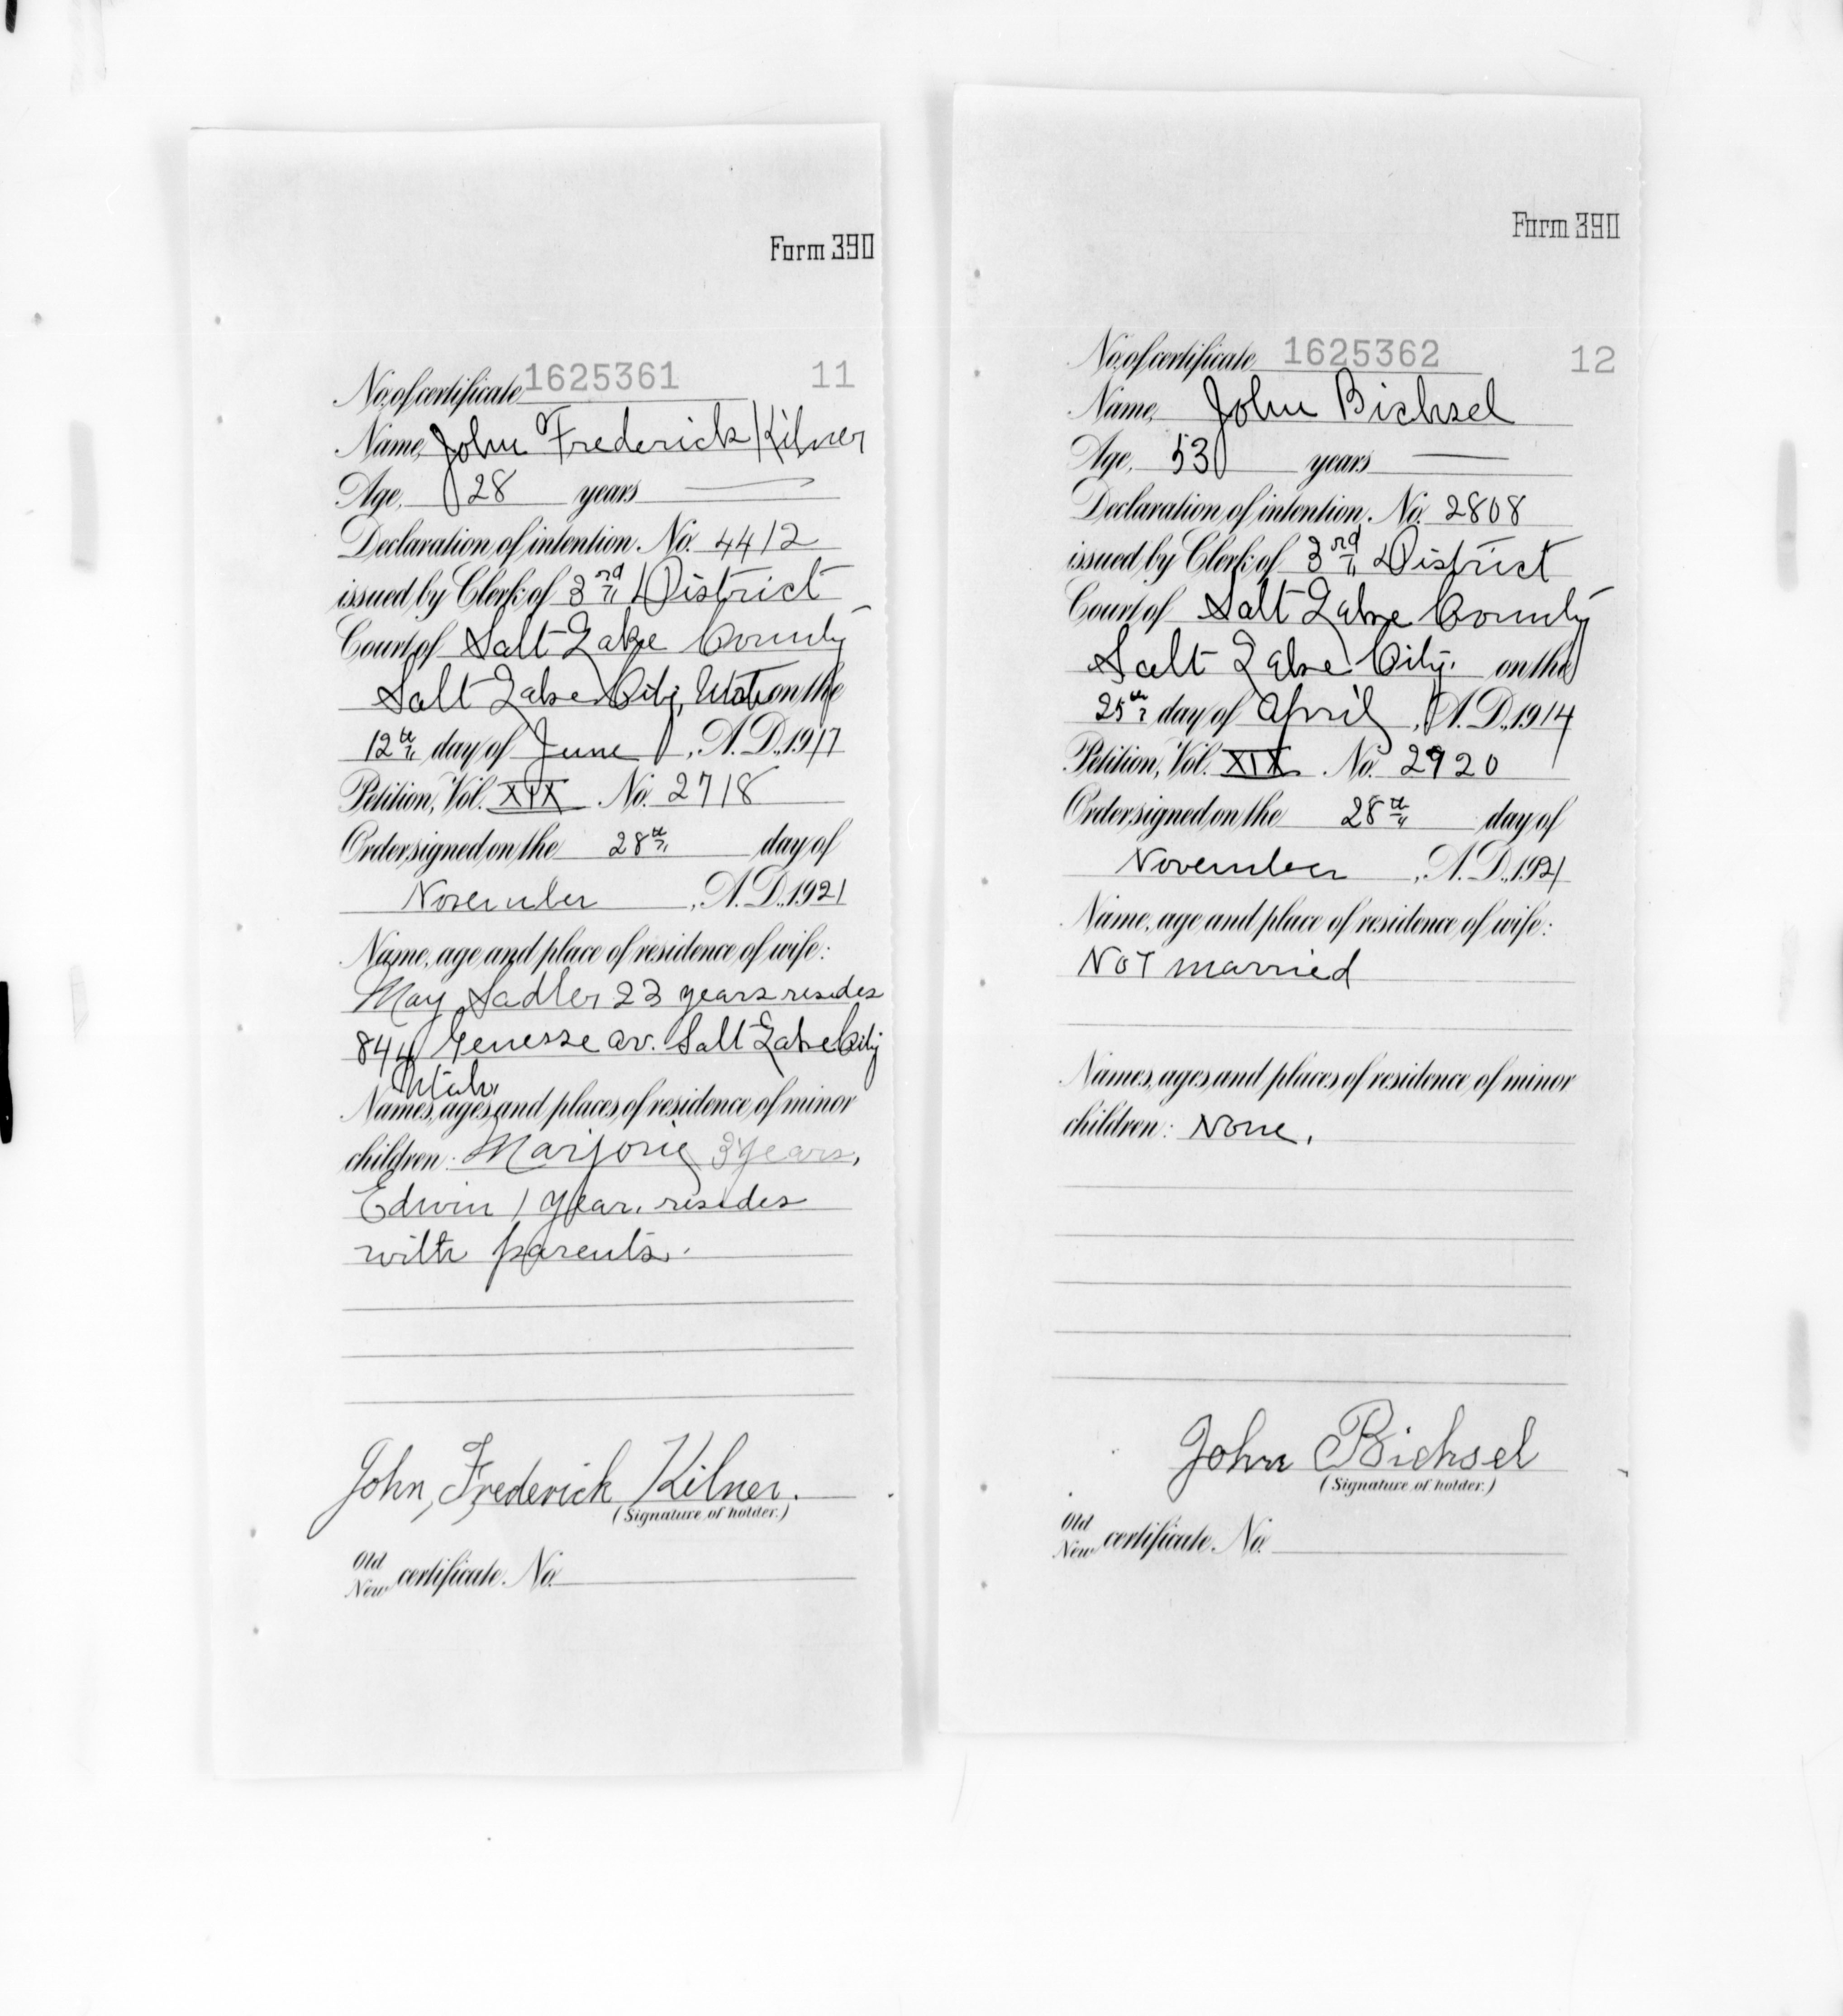 Form 390
No. of certificate 1625361 11
Name, John Frederick Kilner
Age, 28 years
Declaration of intention. No. 4412
issued by Clerk of 3rd District
Court of Salt Lake County
Salt Lake City, Utah on the
12th day of June, A.D. 1917
Petition, Vol. XIX No. 2718
Order signed on the 28th day of
November, A.D. 1921
Name, age and place of residence of wife:
May Sadler 23 years resides
844 Genesse av. Salt Lake City
Utah.
Names, ages and places of residence of minor
children: Marjorie 3 years,
Edwin 1 year. resides
with parents.
John, Frederick Kilner.
(Signature of holder.)
Old
New certificate. No.
Form 390
No. of certificate 1625362 12
Name, John Bichsel
Age, 53 years
Declaration of intention. No. 2808
issued by Clerk of 3rd District
Court of Salt Lake County
Salt Lake City. on the
25th day of April, A.D. 1914
Petition, Vol. XIX No. 2920
Order signed on the 28th day of
November, A.D. 1921
Name, age and place of residence of wife:
Not married
Names, ages and places of residence of minor
children: None.
John Bichsel
(Signature of holder.)
Old
New certificate. No.